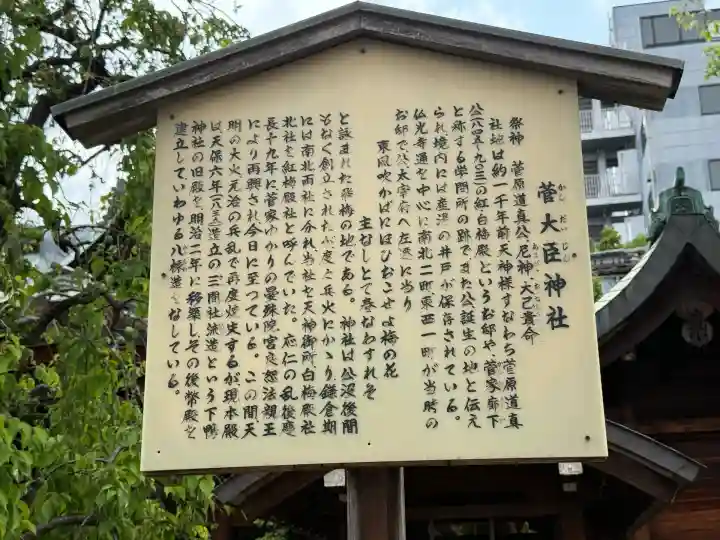 菅大臣神社
かんだいじん
祭神 菅原道真公、尼神、大己貴命
社地は約一千年前天神様すなわち菅原道真
公(八四五〜九〇三)の紅白梅殿というお邸や、菅家廊下
と称する学問所の跡でまた公誕生の地と伝え
られ境内には産湯の井戸が保存されている。
仏光寺通を中心に南北二町東西一町が当時の
お邸で公太宰府へ左遷に当り
東風吹かばにほひおこせよ梅の花
主なしとて春なわすれそ
と詠まれた飛梅の地である。神社は公没後間
もなく創立されたが度々兵火にかゝり鎌倉期
には南北両社に分れ当社を天神御所白梅殿社
北社を紅梅殿社と呼んでいた。応仁の乱後慶
長十九年に菅家ゆかりの曼殊院宮良恕法親王
により再興され今日に至つている。この間、天
明の大火元治の兵乱で再度焼失するが現本殿
は天保六年(一八三五)造立の三間社流造という下鴨
神社の旧殿を、明治二年に移築しその後幣殿を
建立していわゆる八棟造をなしている。